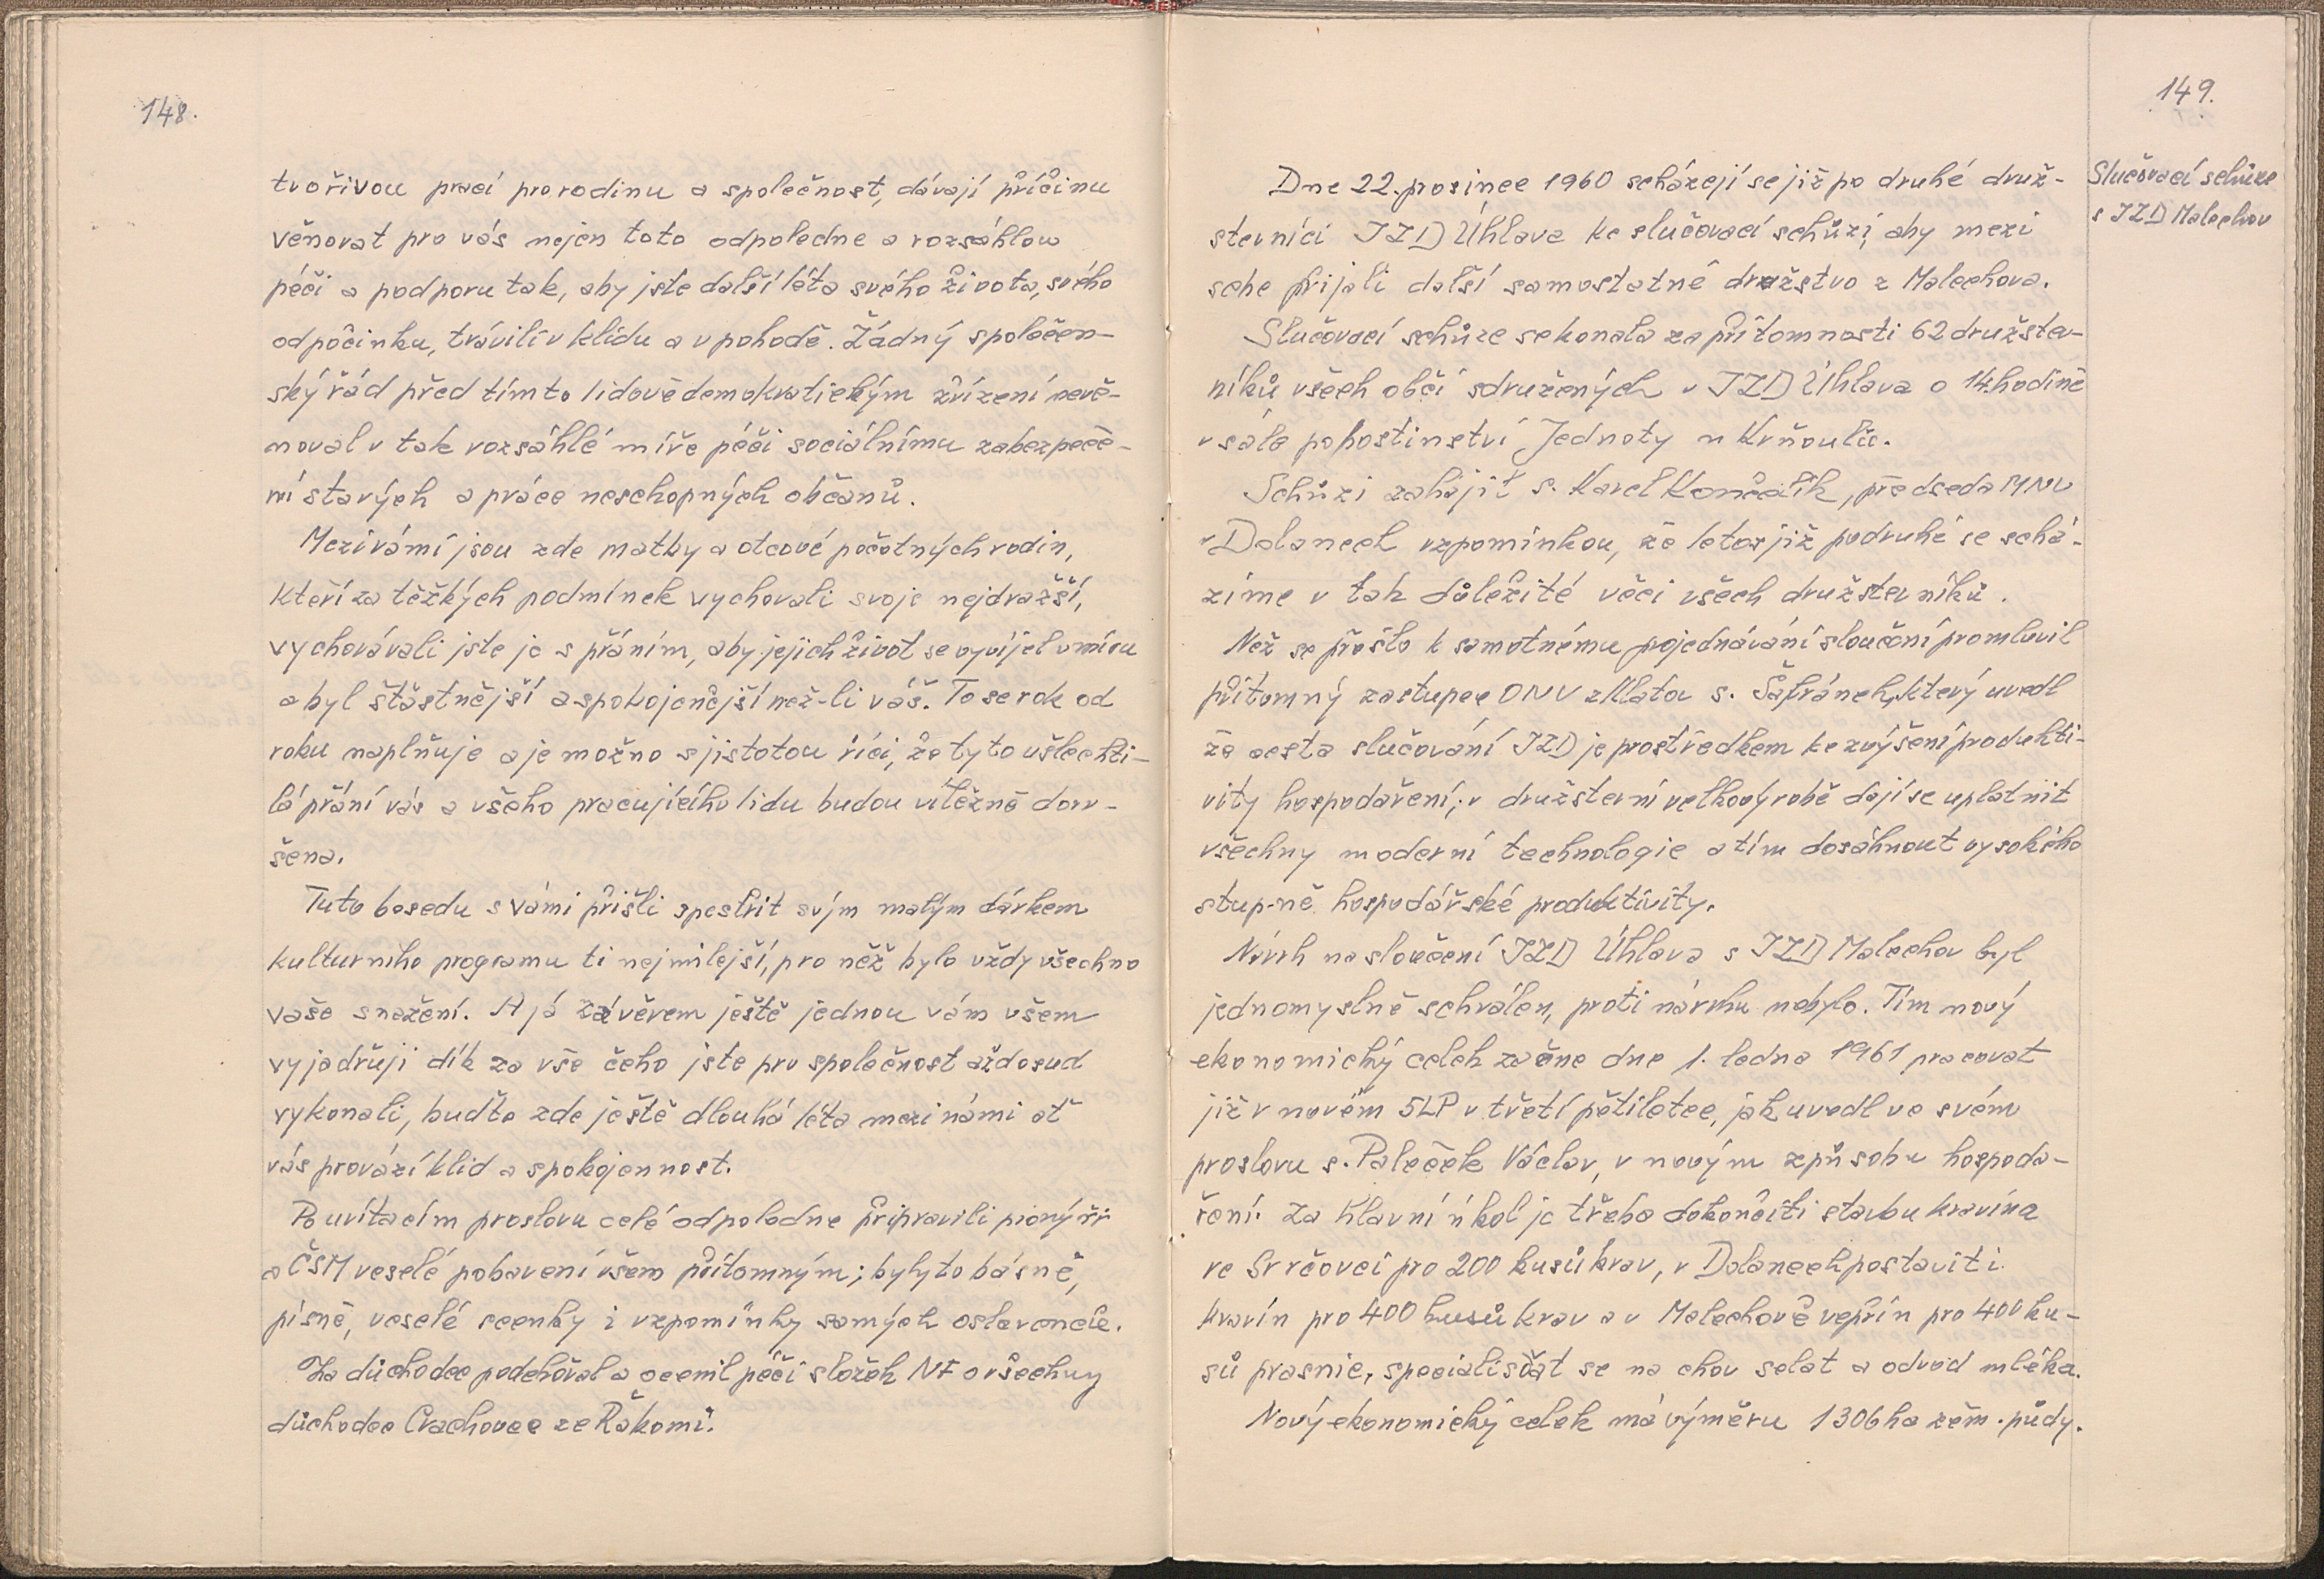 148.
tvořivou prací pro rodinu a společnost, dávají příčinu
věnovat pro vás nejen toto odpoledne a rozsáhlou
péči a podporu tak, aby jste další léta svého života, svého
odpočinku, trávili v klidu a v pohodě. Žádný společen-
ský řád před tímto lidovědemokratickým zřízení nevě-
noval v tak rozsáhlé míře péči sociálnímu zabezpeče-
ní starých a práce neschopných občanů.
Mezi vámi jsou zde matky a otcové početných rodin,
kteří za těžkých podmínek vychovali svoje nejdražší,
vychovávali jste je s přáním, aby jejich život se vyvíjel v míru
a byl šťastnější a spokojenější než-li váš. To se rok od
roku naplňuje a je možno s jistotou říci, že tyto ušlechti-
lá přání vás a všeho pracujícího lidu budou vítězně dovr-
šena.
Tuto besedu s vámi přišli zpestřit svým malým dárkem
kulturního programu ti nejmilejší, pro něž bylo vždy všechno
vaše snažení. A já závěrem ještě jednou vám všem
vyjadřuji dík za vše čeho jste pro společnost až dosud
vykonali, buďte zde ještě dlouhá léta mezi námi ať
vás provází klid a spokojennost.
Po uvítacím proslovu celé odpoledne připravili pionýři
a ČSM veselé pobavení všem přítomným; byly to básně,
písně, veselé scenky i vzpomínky samých oslavenců.
Za důchodce poděkoval a ocenil péči složek NF o všechny
důchodce Crachovec ze Řakomi.
149.
Slučovací schůze
s JZD Malechov
Dne 22. prosince 1960 scházejí se již po druhé druž-
stevníci JZD Úhlava ke slučovací schůzi, aby mezi
sebe přijali další samostatné družstvo z Malechova.
Slučovací schůze se konala za přítomnosti 62 družstev-
níků všech obcí sdružených v JZD Úhlava o 14. hodině
v sále pohostinství Jednoty u Krňoulů.
Schůzi zahájil s. Karel Končelík, předseda MNV
v Dolanech vzpomínkou, že letos již podruhé se schá-
zíme v tak důležité věci všech družstevníků.
Než se přešlo k samotnému projednávání sloučení promluvil
přítomný zástupce ONV z Klatov s. Šafránek, který uvedl
že cesta slučování JZD je prostředkem ke zvýšení produkti-
vity hospodaření; v družstevní velkovýrobě dají se uplatnit
všechny moderní technologie a tím dosáhnout vysokého
stup-ně hospodářské produktivity.
Návrh na sloučení JZD Úhlava s JZD Malechov byl
jednomyslně schválen, proti návrhu nebylo. Tím nový
ekonomický celek začne dne 1. ledna 1961 pracovat
již v novém 5LP v třetí pětiletce, jak uvedl ve svém
proslovu s. Paleček Václav, v novým způsobu hospoda-
ření. Za hlavní úkol je třeba dokončiti stavbu kravína
ve Svrčovci pro 200 kusů krav, v Dolanech postaviti
kravín pro 400 kusů krav a v Malechově vepřín pro 400 ku-
sů prasnic, specialisovat se na chov selat a odvod mléka.
Nový ekonomický celek má výměru 1306 ha zěm. půdy.